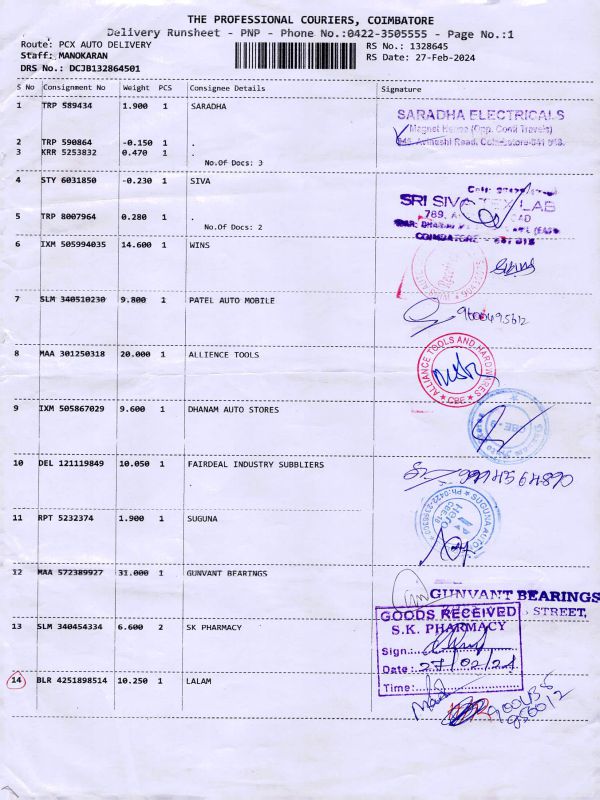 THE PROFESSIONAL COURIERS, COIMBATORE
Delivery Runsheet - PNP - Phone No.:0422-3505555 - Page No.:1
Route: PCX AUTO DELIVERY
RS No.: 1328645
Staff: MANOKARAN
RS Date: 27-Feb-2024
DRS No.: DCJB132864501
S No Consignment No Weight PCS Consignee Details Signature
1 TRP 589434 1.900 1 SARADHA
SARADHA ELECTRICALS
2 TRP 590864 -0.150 1 .
3 KRR 5253832 0.470 1 .
No.Of Docs: 3
4 STY 6031850 -0.230 1 SIVA
SRI
789,
5 TRP 8007964 0.280 1 .
No.Of Docs: 2
COIMBATORE
6 IXM 505994035 14.600 1 WINS
7 SLM 340510230 9.800 1 PATEL AUTO MOBILE
8 MAA 301250318 20.000 1 ALLIENCE TOOLS
ALLIANCE TOOLS AND HARDWARES
CBE
9 IXM 505867029 9.600 1 DHANAM AUTO STORES
10 DEL 121119849 10.050 1 FAIRDEAL INDUSTRY SUBBLIERS
.
11 RPT 5232374 1.900 1 SUGUNA
SUGUNA AUTO
12 MAA 572389927 31.000 1 GUNVANT BEARINGS
GUNVANT BEARINGS
STREET,
GOODS RECEIVED
13 SLM 340454334 6.600 2 SK PHARMACY
S.K. PHARMACY
Sign:
Date: 27/02/24
14 BLR 4251898514 10.250 1 LALAM
Time: